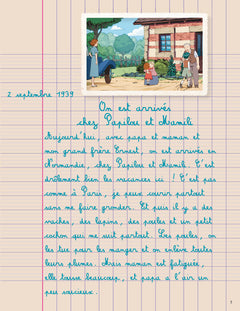 2 septembre 1939
On est arrivés
chez Papilou et Mamili
Aujourd'hui, avec papa et maman et
mon grand frère Ernest, on est arrivés en
Normandie, chez Papilou et Mamili. C'est
drôlement bien les vacances ici ! C'est pas
comme à Paris, je peux courir partout
sans me faire gronder. Et puis il y a des
vaches, des lapins, des poules et un petit
cochon qui me suit partout. Les poules, on
les tue pour les manger et on enlève toutes
leurs plumes. Mais maman est fatiguée,
elle tousse beaucoup, et papa a l'air un
peu soucieux.